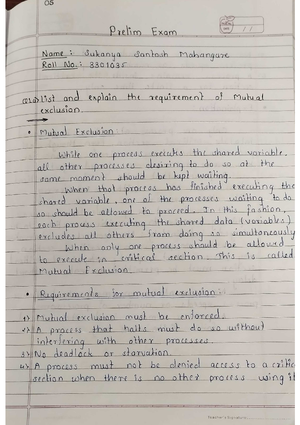 05
Prelim Exam
Name : Sukanya Santosh Mohangare
Roll No. : 3301035
Q.1.a) List and explain the requirement of Mutual
exclusion.
• Mutual Exclusion
While one process executes the shared variable,
all other processes desiring to do so at the
same moment should be kept waiting.
When that process has finished executing the
shared variable, one of the processes waiting to do
so should be allowed to proceed. In this fashion,
each process executing the shared data (variables)
excludes all others from doing so simultaneously
When only one process should be allowed
to execute in critical section. This is called
Mutual Exclusion.
• Requirements for mutual exclusion :
1) Mutual exclusion must be enforced.
2) A process that halts must do so without
interfering with other processes.
3) No deadlock or starvation.
4) A process must not be denied access to a critic
section when there is no other process using it